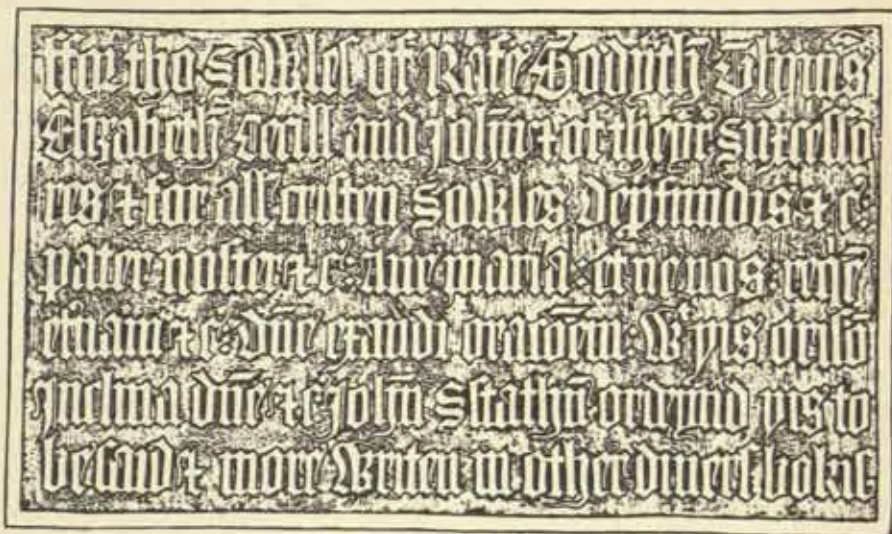 ffor tho Sowles of Rafe Godith Thom̄s
Elizabeth Cecill and Joh̄n & of theyr Successo
res & for all cristen Sowles Depfundis & c̄
pater noster & c̄ Aue maria et ne nos reqē
eternam & c̄ Dn̄e exaudi oracōem Wt yis orisō
Inclina dn̄e & c̄ Joh̄n Sstathū ordeynd yis to
be sayd & more writen in other diuers bokis